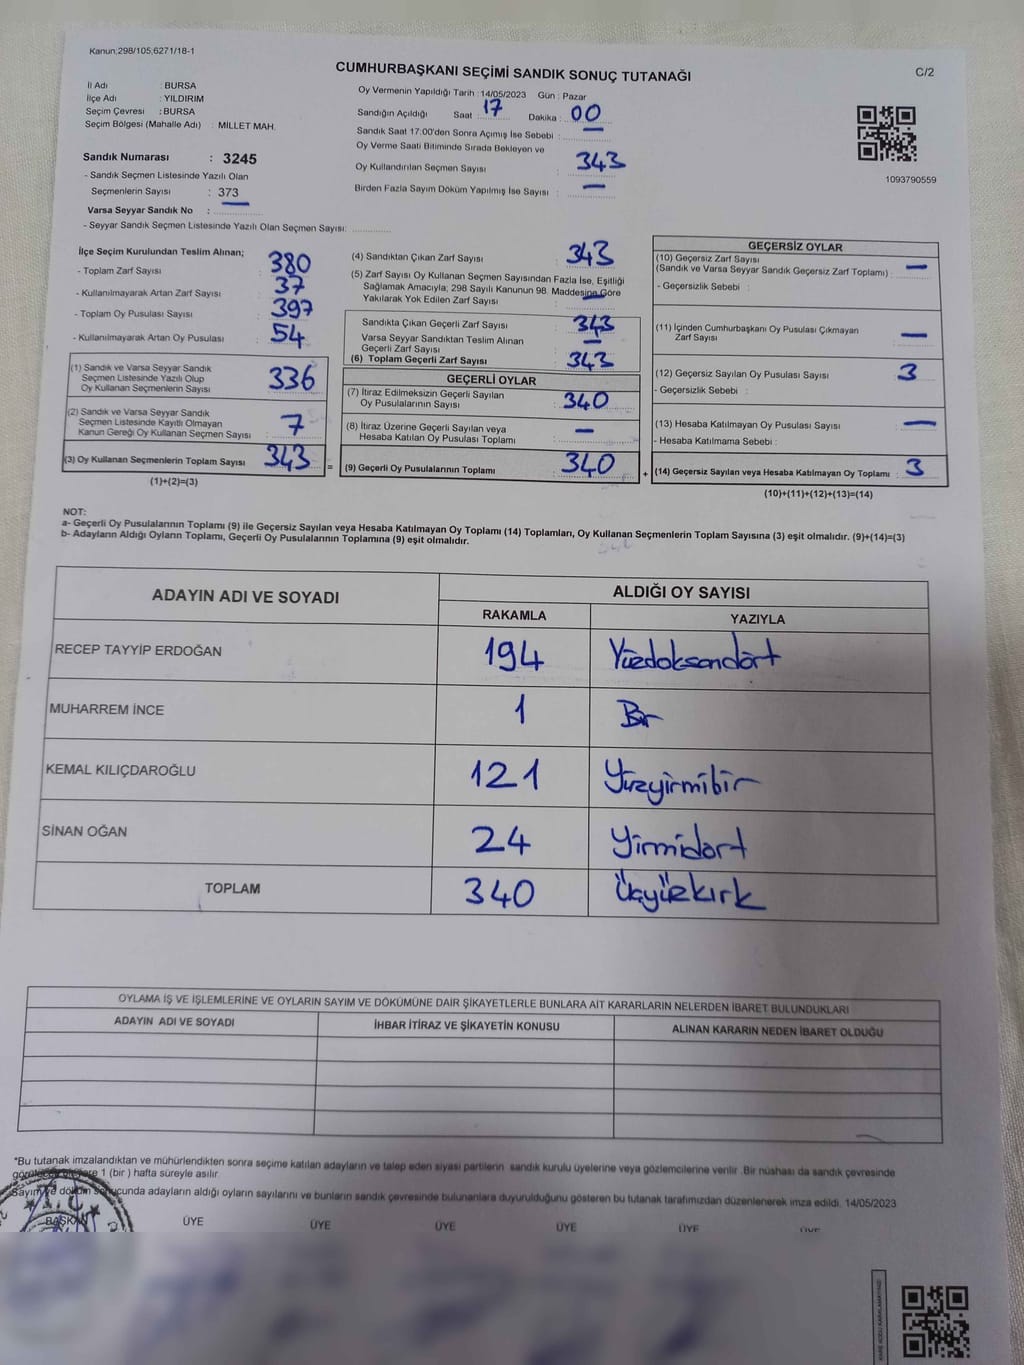 Kanun;298/105,6271/18-1
CUMHURBAŞKANI SEÇİMİ SANDIK SONUÇ TUTANAĞI
C/2
İl Adı : BURSA
İlçe Adı : YILDIRIM
Seçim Çevresi : BURSA
Seçim Bölgesi (Mahalle Adı) : MİLLET MAH.
Sandık Numarası : 3245
- Sandık Seçmen Listesinde Yazılı Olan
Seçmenlerin Sayısı : 373
Varsa Seyyar Sandık No : —
- Seyyar Sandık Seçmen Listesinde Yazılı Olan Seçmen Sayısı:
Oy Vermenin Yapıldığı Tarih : 14/05/2023 Gün : Pazar
Sandığın Açıldığı Saat 17 Dakika : 00
Sandık Saat 17:00'den Sonra Açımış İse Sebebi : —
Oy Verme Saati Bitiminde Sırada Bekleyen ve
Oy Kullandırılan Seçmen Sayısı : 343
Birden Fazla Sayım Döküm Yapılmış İse Sayısı : —
1093790559
İlçe Seçim Kurulundan Teslim Alınan;
- Toplam Zarf Sayısı : 380
- Kullanılmayarak Artan Zarf Sayısı : 37
- Toplam Oy Pusulası Sayısı : 397
- Kullanılmayarak Artan Oy Pusulası : 54
(1) Sandık ve Varsa Seyyar Sandık
Seçmen Listesinde Yazılı Olup
Oy Kullanan Seçmenlerin Sayısı : 336
(2) Sandık ve Varsa Seyyar Sandık
Seçmen Listesinde Kayıtlı Olmayan
Kanun Gereği Oy Kullanan Seçmen Sayısı : 7
(3) Oy Kullanan Seçmenlerin Toplam Sayısı : 343
(1)+(2)=(3)
(4) Sandıktan Çıkan Zarf Sayısı : 343
(5) Zarf Sayısı Oy Kullanan Seçmen Sayısından Fazla İse, Eşitliği
Sağlamak Amacıyla; 298 Sayılı Kanunun 98. Maddesine Göre
Yakılarak Yok Edilen Zarf Sayısı : —
Sandıkta Çıkan Geçerli Zarf Sayısı : 343
Varsa Seyyar Sandıktan Teslim Alınan
Geçerli Zarf Sayısı : —
(6) Toplam Geçerli Zarf Sayısı : 343
GEÇERLİ OYLAR
(7) İtiraz Edilmeksizin Geçerli Sayılan
Oy Pusulalarının Sayısı : 340
(8) İtiraz Üzerine Geçerli Sayılan veya
Hesaba Katılan Oy Pusulası Toplamı : —
= (9) Geçerli Oy Pusulalarının Toplamı : 340
GEÇERSİZ OYLAR
(10) Geçersiz Zarf Sayısı
(Sandık ve Varsa Seyyar Sandık Geçersiz Zarf Toplamı) : —
- Geçersizlik Sebebi :
(11) İçinden Cumhurbaşkanı Oy Pusulası Çıkmayan
Zarf Sayısı : —
(12) Geçersiz Sayılan Oy Pusulası Sayısı : 3
- Geçersizlik Sebebi :
(13) Hesaba Katılmayan Oy Pusulası Sayısı : —
- Hesaba Katılmama Sebebi :
+ (14) Geçersiz Sayılan veya Hesaba Katılmayan Oy Toplamı : 3
(10)+(11)+(12)+(13)=(14)
NOT:
a- Geçerli Oy Pusulalarının Toplamı (9) ile Geçersiz Sayılan veya Hesaba Katılmayan Oy Toplamı (14) Toplamları, Oy Kullanan Seçmenlerin Toplam Sayısına (3) eşit olmalıdır. (9)+(14)=(3)
b- Adayların Aldığı Oyların Toplamı, Geçerli Oy Pusulalarının Toplamına (9) eşit olmalıdır.
ADAYIN ADI VE SOYADI ALDIĞI OY SAYISI
RAKAMLA YAZIYLA
RECEP TAYYİP ERDOĞAN 194 Yüzdoksandört
MUHARREM İNCE 1 Bir
KEMAL KILIÇDAROĞLU 121 Yüzyirmibir
SİNAN OĞAN 24 Yirmidört
TOPLAM 340 Üçyüzkırk
OYLAMA İŞ VE İŞLEMLERİNE VE OYLARIN SAYIM VE DÖKÜMÜNE DAİR ŞİKAYETLERLE BUNLARA AİT KARARLARIN NELERDEN İBARET BULUNDUKLARI
ADAYIN ADI VE SOYADI İHBAR İTİRAZ VE ŞİKAYETİN KONUSU ALINAN KARARIN NEDEN İBARET OLDUĞU
*Bu tutanak imzalandıktan ve mühürlendikten sonra seçime katılan adayların ve talep eden siyasi partilerin sandık kurulu üyelerine veya gözlemcilerine verilir. Bir nüshası da sandık çevresinde
1 (bir) hafta süreyle asılır.
Sayım ve döküm sonucunda adayların aldığı oyların sayılarını ve bunların sandık çevresinde bulunanlara duyurulduğunu gösteren bu tutanak tarafımızdan düzenlenerek imza edildi. 14/05/2023
BAŞKAN ÜYE ÜYE ÜYE ÜYE ÜYE ÜYE
T.C.